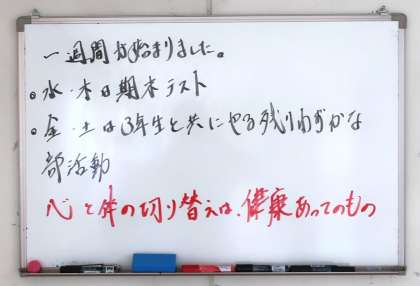 一週間が始まりました。
• 水・木は期末テスト
• 金・土は3年生と共にやる残りわずかな
部活動
心と体の切り替えは、健康あってのもの